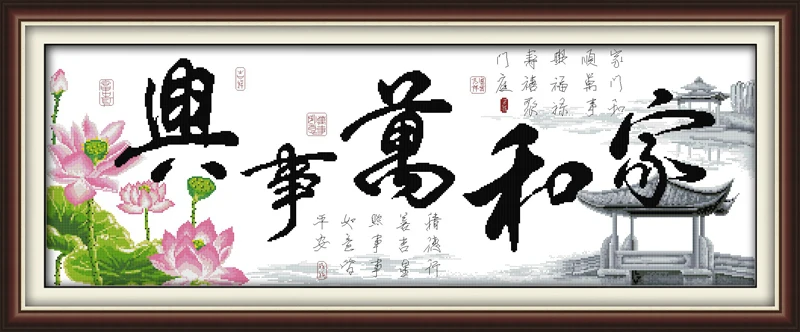 家和萬事興
家门和
順萬事
興福禄
寿禧聚
门庭
積德行
善吉星
照事事
如意皆
平安